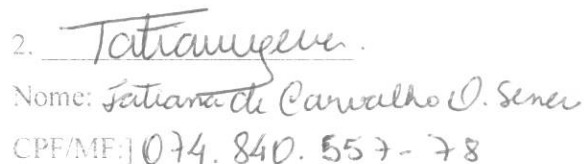 2.
Nome: Tatiana de Carvalho O. Sener
CPF/MF:] 074.840.557-78